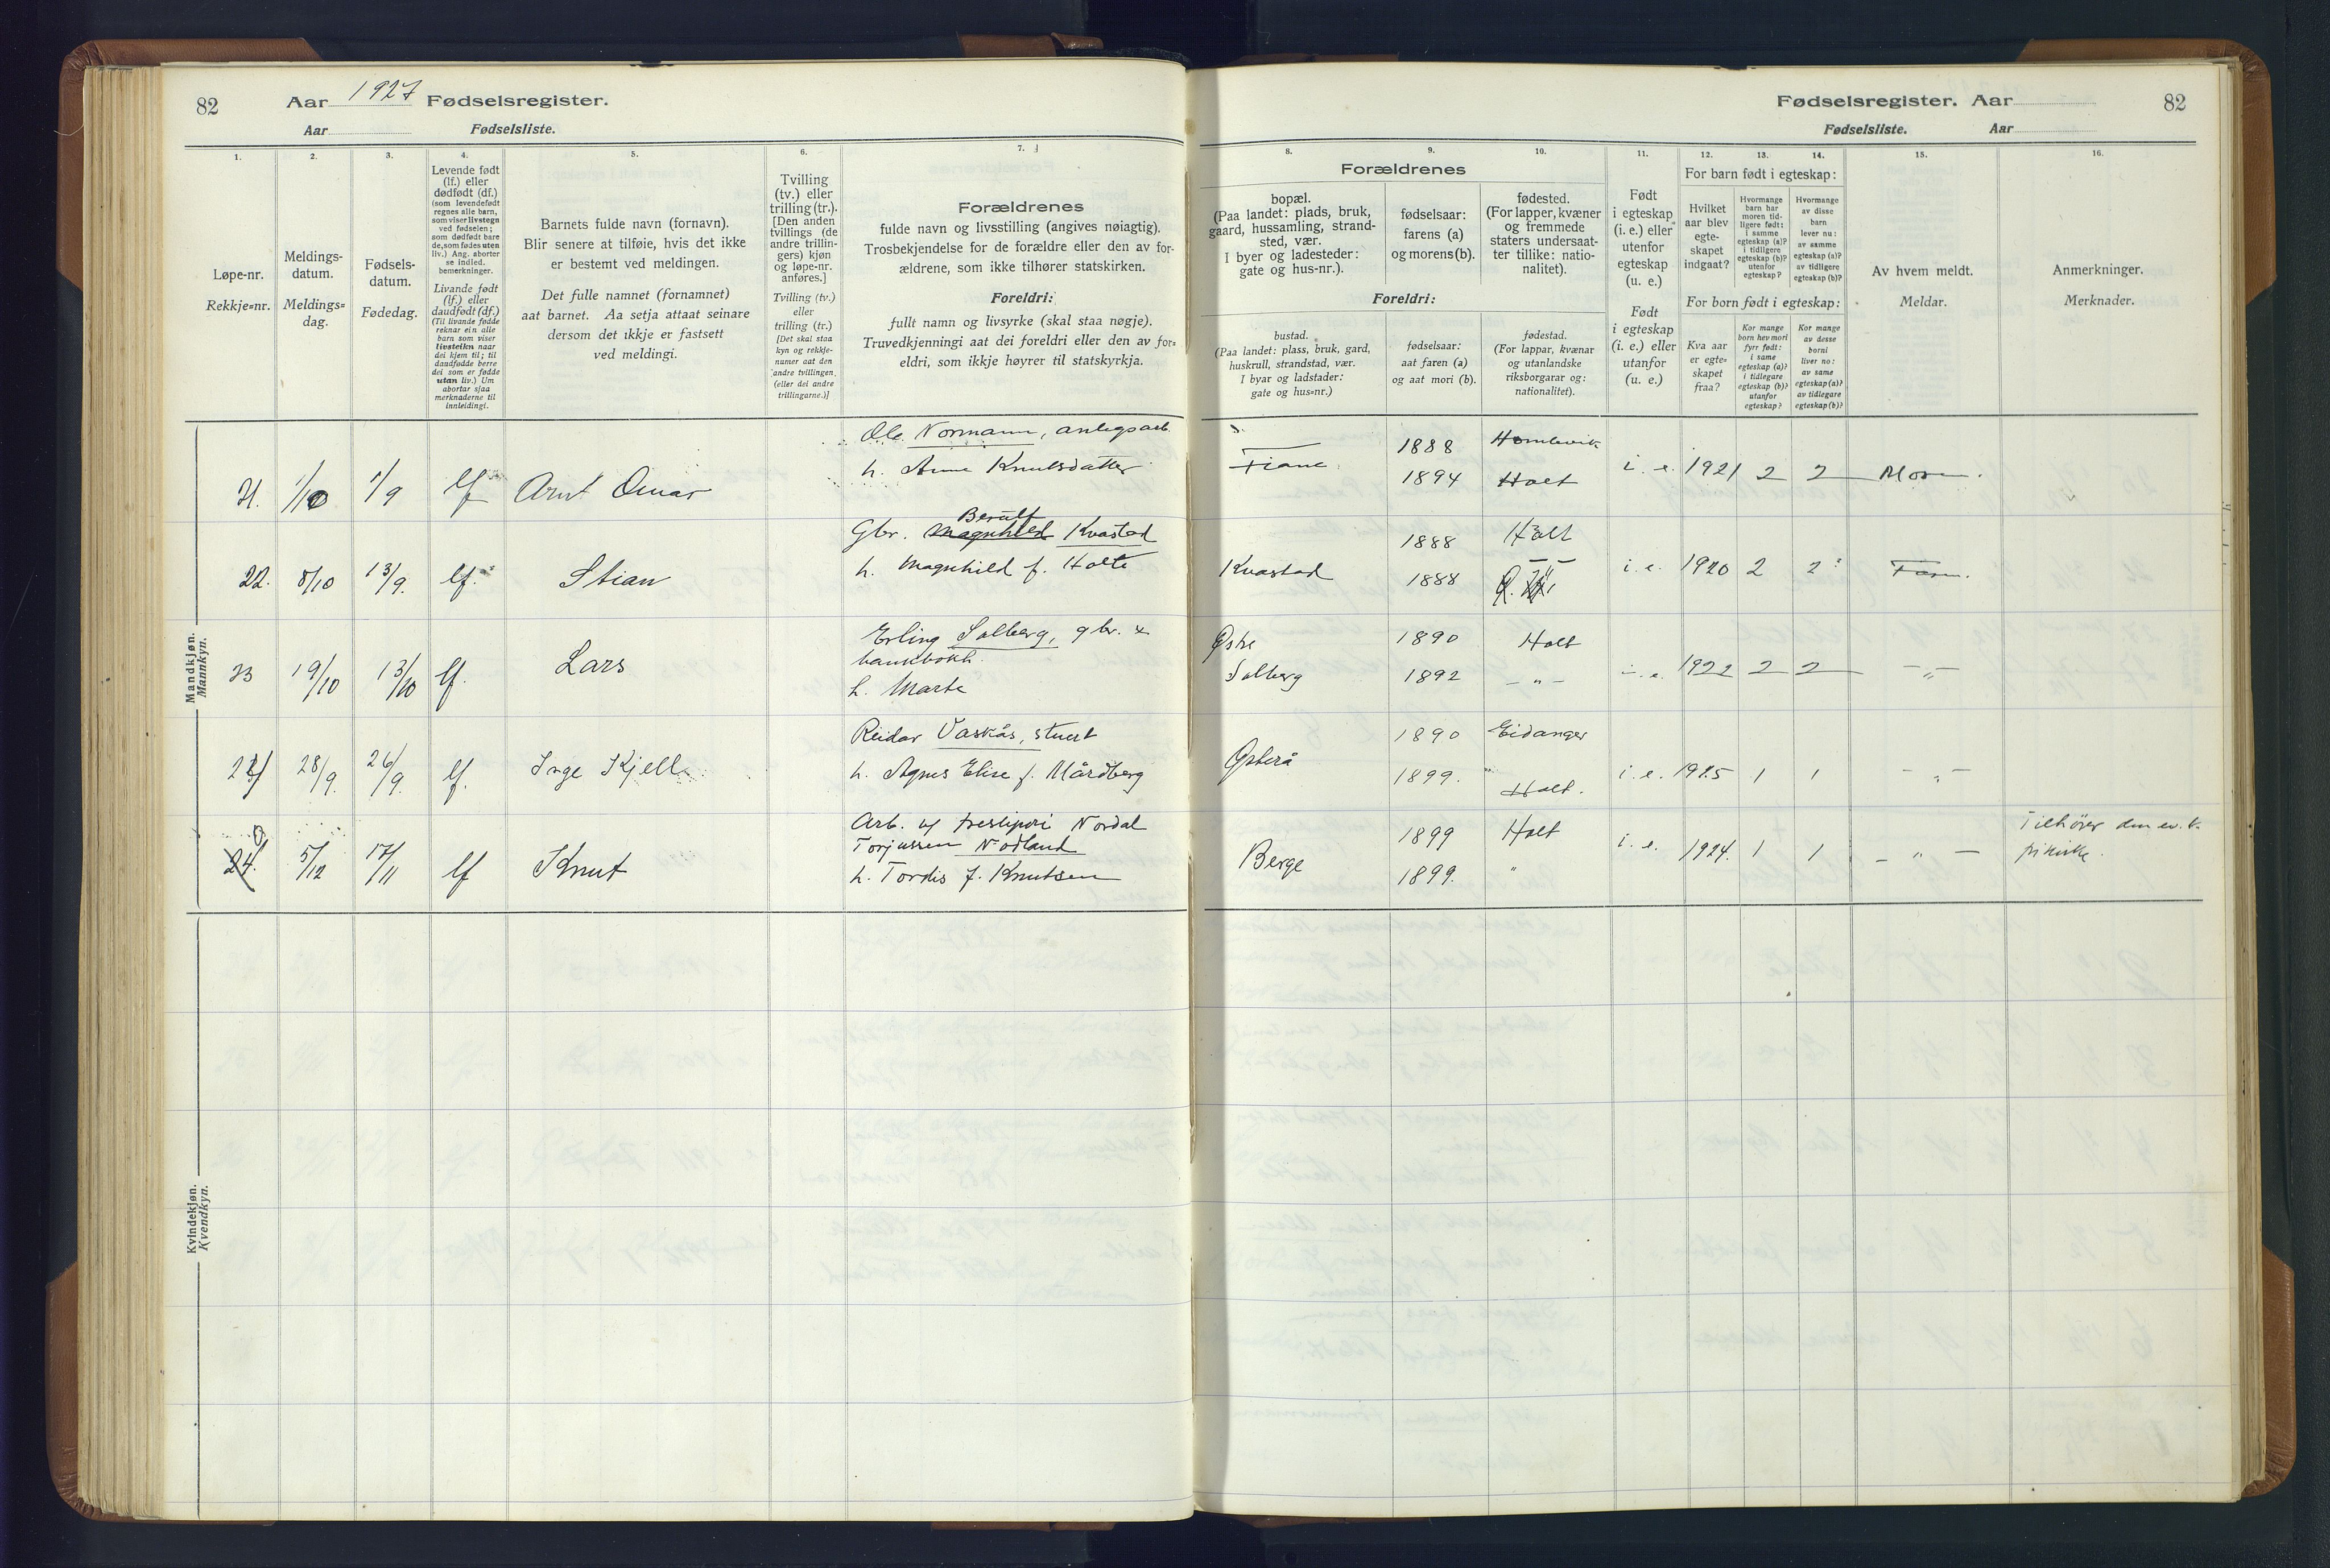 82
Aar 1927 Fødselsregister.
Aar Fødselsliste.
1.
2.
3.
4.
5.
6.
7.
Løpe-nr.
Rekkje=nr.
Meldings-
datum.
Meldings=
dag.
Fødsels-
datum.
Fødedag.
Levende født
(lf.) eller
dødfødt (df.)
(som levendefødt
regnes alle barn,
som viser livstegn
ved fødselen;
som dødfødt bare
de, som fødes uten
liv.) Ang. aborter
se indled.
bemerkninger.
Livande født
(lf.) eller
daudfødt (df.)
(Til livande fødde
reknar ein alle
barn som viser
livsteikn naar
dei kjem til; til
daudfødde berre
dei som er fødde
utan liv.) Um
abortar sjaa
merknaderne til
innleidingi.
Barnets fulde navn (fornavn).
Blir senere at tilføie, hvis det ikke
er bestemt ved meldingen.
Det fulle namnet (fornamnet)
aat barnet. Aa setja attaat seinare
dersom det ikkje er fastsett
ved meldingi.
Tvilling
(tv.) eller
trilling (tr.).
[Den anden
tvillings (de
andre trillin-
gers) kjøn
og løpe-nr.
anføres.]
Tvilling (tv.)
eller
trilling (tr.)
[Det skal staa
kyn og rekkje-
numer aat den
andre tvillingen
(eller dei andre
trillingarne.)]
Forældrenes
fulde navn og livsstilling (angives nøiagtig).
Trosbekjendelse for de forældre eller den av for-
ældrene, som ikke tilhører statskirken.
Foreldri:
fullt namn og livsyrke (skal staa nøgje).
Truvedkjenningi aat dei foreldri eller den av for=
eldri, som ikkje høyrer til statskyrkja.
Mandkjøn.
Mannkyn.
21. 1/10 1/9 lf Arnt Omar
Ole Normann, anlegsarb.
h. Anna Knutsdatter
22. 8/10 13/9. lf. Stian
Gbr. Magnhild Berulf Kvastad
h. Magnhild f. Holte
23 19/10 13/10 lf. Lars
Erling Solberg, gbr. &
bankbokh.
h. Marta
24 28/9. 26/9. lf. Inge Kjell
Reidar Vaskås, stuert
h. Agnes Elise f. Mårdberg
24. 5/12 17/11 lf Knut
Arb. Nordal
Torjussen Nodland
h. Tordis f. Knutsen
Kvindekjøn.
Kvendkyn.
Fødselsregister. Aar
82
Fødselsliste. Aar
8.
9.
10.
11.
12.
13.
14.
15.
16.
Forældrenes
bopæl.
(Paa landet: plads, bruk,
gaard, hussamling, strand-
sted, vær.
I byer og ladesteder:
gate og hus-nr.).
fødselsaar:
farens (a)
og morens (b).
fødested.
(For lapper, kvæner
og fremmede
staters undersaat-
ter tillike: natio-
nalitet).
Foreldri:
bustad.
(Paa landet: plass, bruk, gard,
huskrull, strandstad, vær.
I byar og ladstader:
gate og hus=nr.)
fødselsaar:
aat faren (a)
og aat mori (b).
fødestad.
(For lappar, kvænar
og utanlandske
riksborgarar og:
nationalitet).
Født
i egteskap
(i. e.) eller
utenfor
egteskap
(u. e.)
Født
i egteskap
(i. e.) eller
utanfor
egteskap
(u. e.)
For barn født i egteskap:
Hvilket
aar blev
egte-
skapet
indgaat?
Hvormange
barn har
moren tid-
ligere født:
i samme
egteskap (a)?
i tidligere
egteskap (b)?
utenfor
egteskap?
Hvormange
av disse
barn
lever nu:
av samme
egteskap (a)?
av tidligere
egteskap (b)?
For born født i egteskap:
Kva aar
er egte=
skapet
fraa?
Kor mange
born hev mori
fyrr født:
i same
egteskap (a)?
i tidlegare
egteskap (b)?
utanfor
egteskap?
Kor mange
av desse
borni
liver no:
av same
egteskap (a)?
av tidlegare
egteskap (b)?
Av hvem meldt.
Meldar.
Anmerkninger.
Merknader.
Fiane 1888 1894 Holt i. e. 1921 2 2 Moren.
Kvastad 1888 Holt 1888 i. e. 1920 2 2 Faren.
Østre
Solberg 1890 Holt 1892 — " — i. e. 1922 2 2 — " —
Østerå 1890 Eidanger 1899. Holt. i. e. 1925 1 1 — " —
Berge 1899 Holt 1899. " i. e. 1924. 1 1 — " —
Tilhører den ev. l.
frikirke.